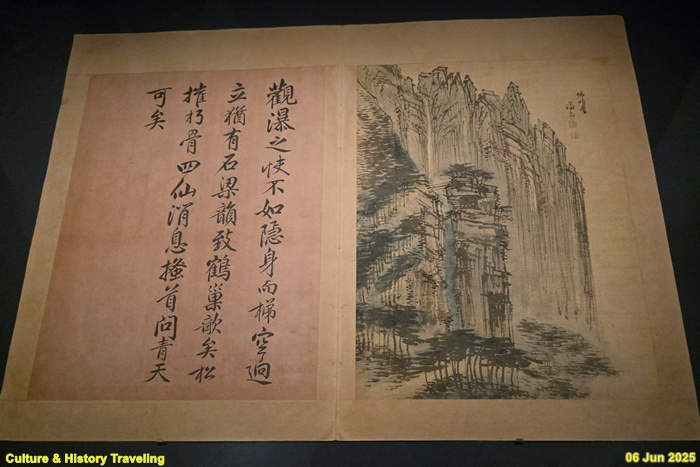 觀瀑之快不如隱身而梯空迥
立猶有石梁韻致鶴巢欹矣松
摧朽骨四仙消息搔首問青天
可矣
Culture & History Traveling
06 Jun 2025